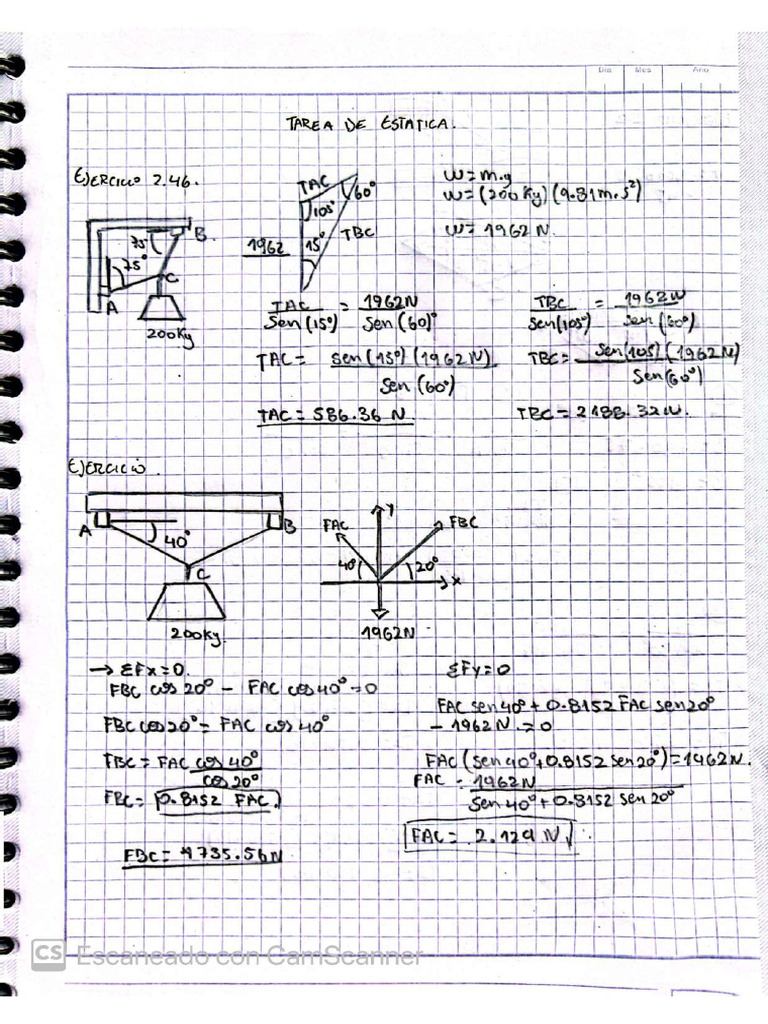 Dia Mes Año
TAREA DE ESTATICA.
EJERCICIO 2.46.
TAC
60°
105°
15°
TBC
1962
W=m.g
W=(200Kg)(9.81m.s²)
W=1962N.
75°
75°
B
C
A
200Kg
TAC/Sen(15°) = 1962N/Sen(60)°
TAC= sen(15°)(1962N)/Sen(60°)
TAC=586.36 N.
TBC/Sen(105°) = 1962N/Sen(60°)
TBC= Sen(105)(1962N)/Sen(60°)
TBC=2188.32N.
EJERCICIO.
A
40°
B
C
200Kg.
FAC
y
FBC
40°
20°
x
1962N
→ ΣFx=0.
FBC cos 20° - FAC cos40°=0
FBC cos20°= FAC cos 40°
FBC= FAC cos 40°/cos 20°
FBC= 0.8152 FAC.
FBC= 1735.56N
ΣFy=0
FAC sen40°+0.8152 FAC sen20°
-1962N.=0
FAC(sen40°+0.8152 sen20°)=1962N.
FAC = 1962N/Sen40°+0.8152 sen20°
FAC= 2.129 N
CS Escaneado con CamScanner